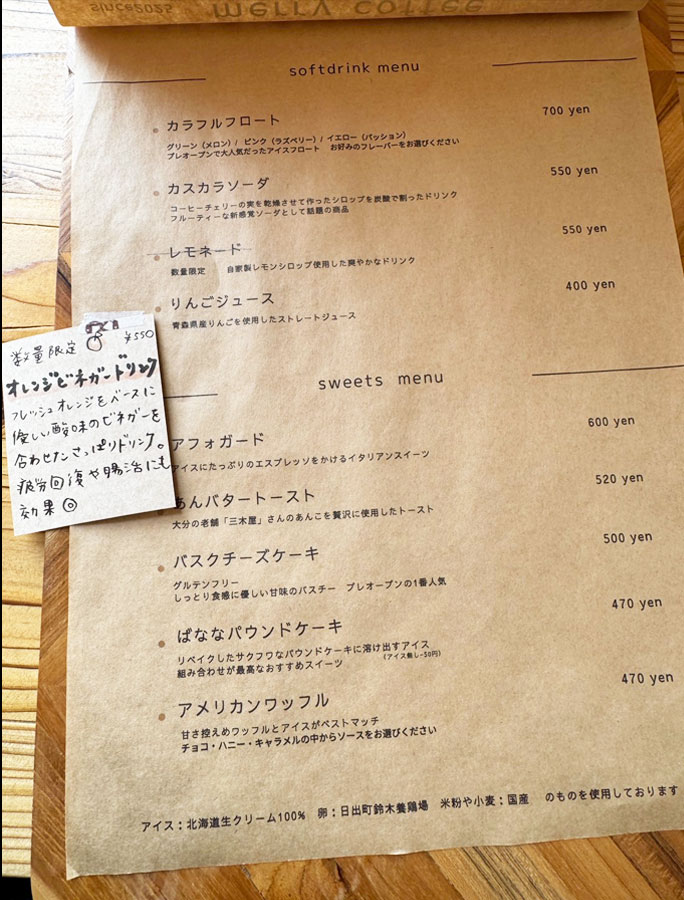 since2025
merry coffee
softdrink menu
カラフルフロート 700 yen
グリーン（メロン）/ ピンク（ラズベリー）/ イエロー（パッション）
プレオープンで大人気だったアイスフロート お好みのフレーバーをお選びください
カスカラソーダ 550 yen
コーヒーチェリーの実を乾燥させて作ったシロップを炭酸で割ったドリンク
フルーティーな新感覚ソーダとして話題の商品
レモネード 550 yen
数量限定 自家製レモンシロップ使用した爽やかなドリンク
りんごジュース 400 yen
青森県産りんごを使用したストレートジュース
数量限定 ¥550
オレンジビネガードリンク
フレッシュオレンジをベースに
優しい酸味のビネガーを
合わせたさっぱりドリンク。
疲労回復や腸活にも
効果◎
sweets menu
アフォガード 600 yen
アイスにたっぷりのエスプレッソをかけるイタリアンスイーツ
あんバタートースト 520 yen
大分の老舗「三木屋」さんのあんこを贅沢に使用したトースト
バスクチーズケーキ 500 yen
グルテンフリー
しっとり食感に優しい甘味のバスチー プレオープンの1番人気
ばななパウンドケーキ 470 yen
リベイクしたサクフワなパウンドケーキに溶け出すアイス
組み合わせが最高なおすすめスイーツ (アイス無し-50円)
アメリカンワッフル 470 yen
甘さ控えめワッフルとアイスがベストマッチ
チョコ・ハニー・キャラメルの中からソースをお選びください
アイス：北海道生クリーム100% 卵：日出町鈴木養鶏場 米粉や小麦：国産 のものを使用しております